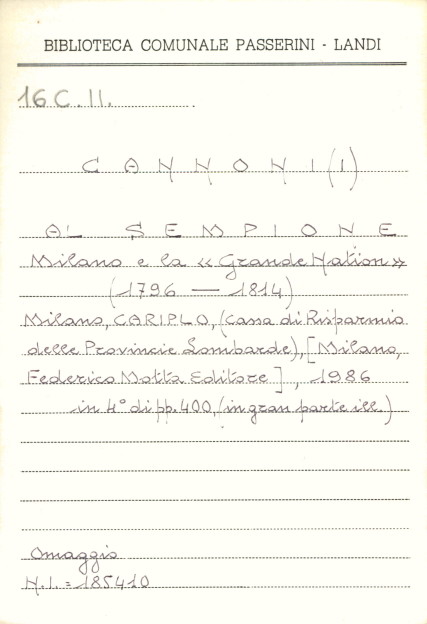 BIBLIOTECA COMUNALE PASSERINI - LANDI
16 C. II.
CANNONI (I)
AL SEMPIONE
Milano e la « Grande Nation »
(1796 — 1814)
Milano, CARIPLO, (Cassa di Risparmio
delle Provincie Lombarde), [Milano,
Federico Motta Editore], 1986
in 4° di pp. 400, (in gran parte ill.)
Omaggio
N.I. = 185410